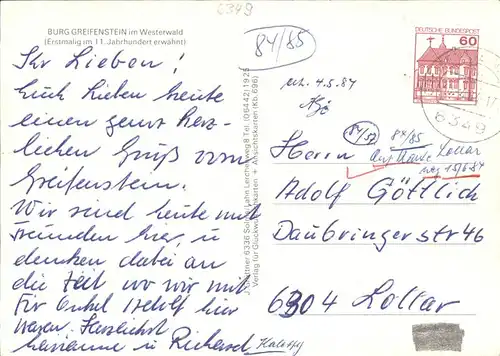 6349
BURG GREIFENSTEIN im Westerwald
(Erstmalig im 11. Jahrhundert erwähnt)
Ihr Lieben!
Euch Lieben heute
einen ganz herz-
lichen Gruß vom
Greifenstein.
Wir sind heute mit
Freunden hier, u
denken dabei an
die Zeit wo wir mit
Onkel hier
waren. Herzlichst
Marianne u Richard
84/85
4.5.84
DEUTSCHE BUNDESPOST
60
6349
84/52
84/85
Lollar
Herrn
Adolf Göttlich
Daubringerstr 46
6304 Lollar
6336 Solms-Lahn Lerchenweg 8 Tel. (06442) 1925
Verlag für Glückwunschkarten + Ansichtskarten (Kb. 696)